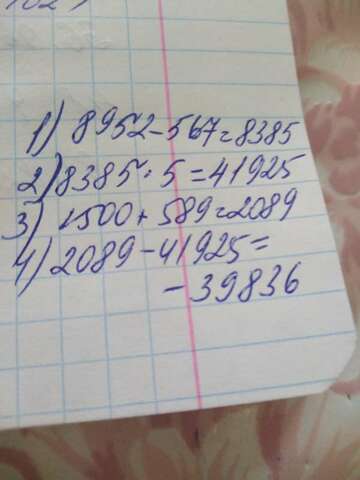 1) 8952-567=8385
2) 8385·5=41925
3) 1500+589=2089
4) 2089-41925=
-39836